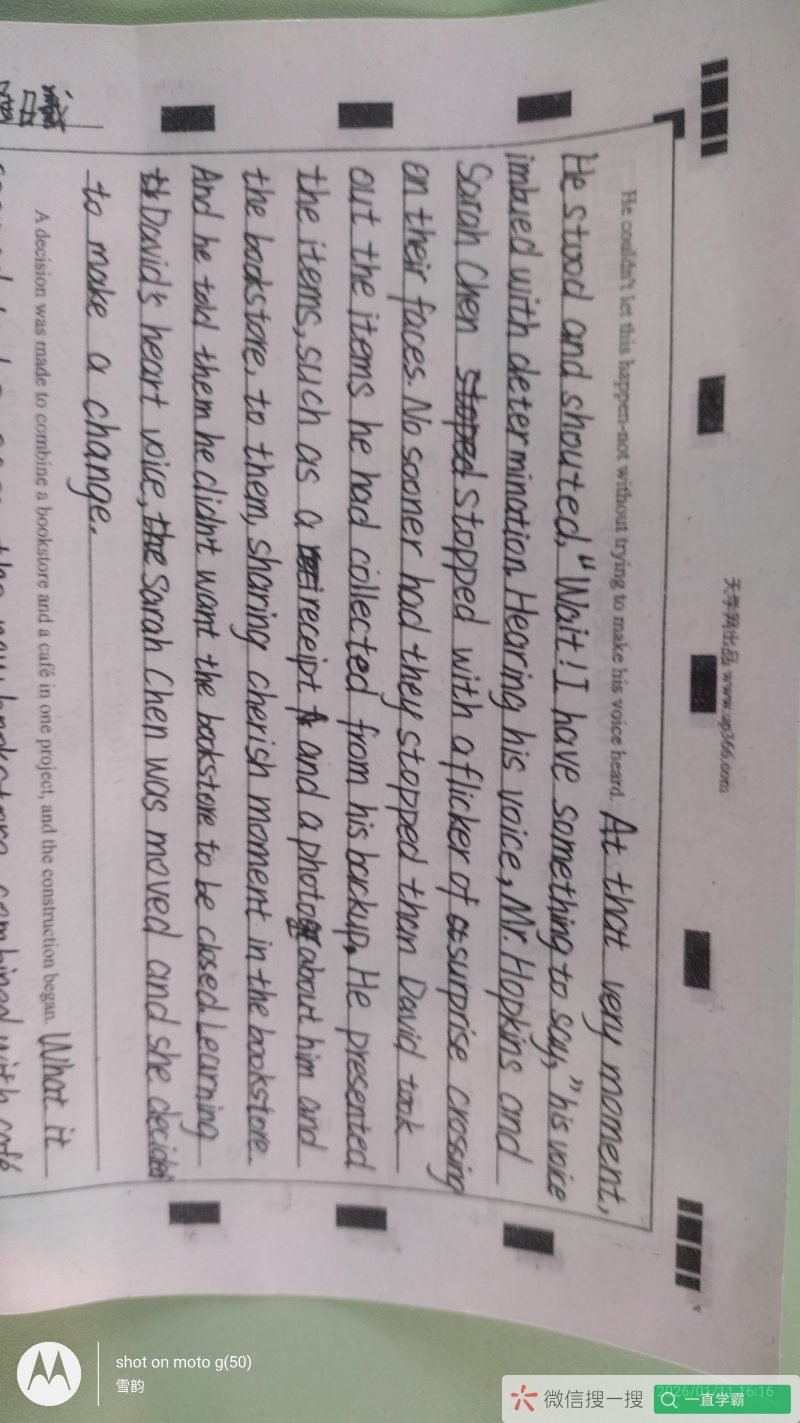 天学网出品 www.up366.com
He couldn't let this happen-not without trying to make his voice heard. At that very moment,
He stood and shouted, "Wait! I have something to say," his voice
imbued with determination. Hearing his voice, Mr. Hopkins and
Sarah Chen stoped stopped with a flicker of a surprise crossing
on their faces. No sooner had they stopped than David took
out the items he had collected from his backup. He presented
the items, such as a receipt and a photo about him and
the bookstore, to them, sharing cherish moment in the bookstore.
And he told them he didn't want the bookstore to be closed. Learning
David's heart voice, the Sarah Chen was moved and she decided
to make a change.
A decision was made to combine a bookstore and a café in one project, and the construction began. What it
shot on moto g(50)
雪韵
2026/01/11 16:16
微信搜一搜
一直学霸